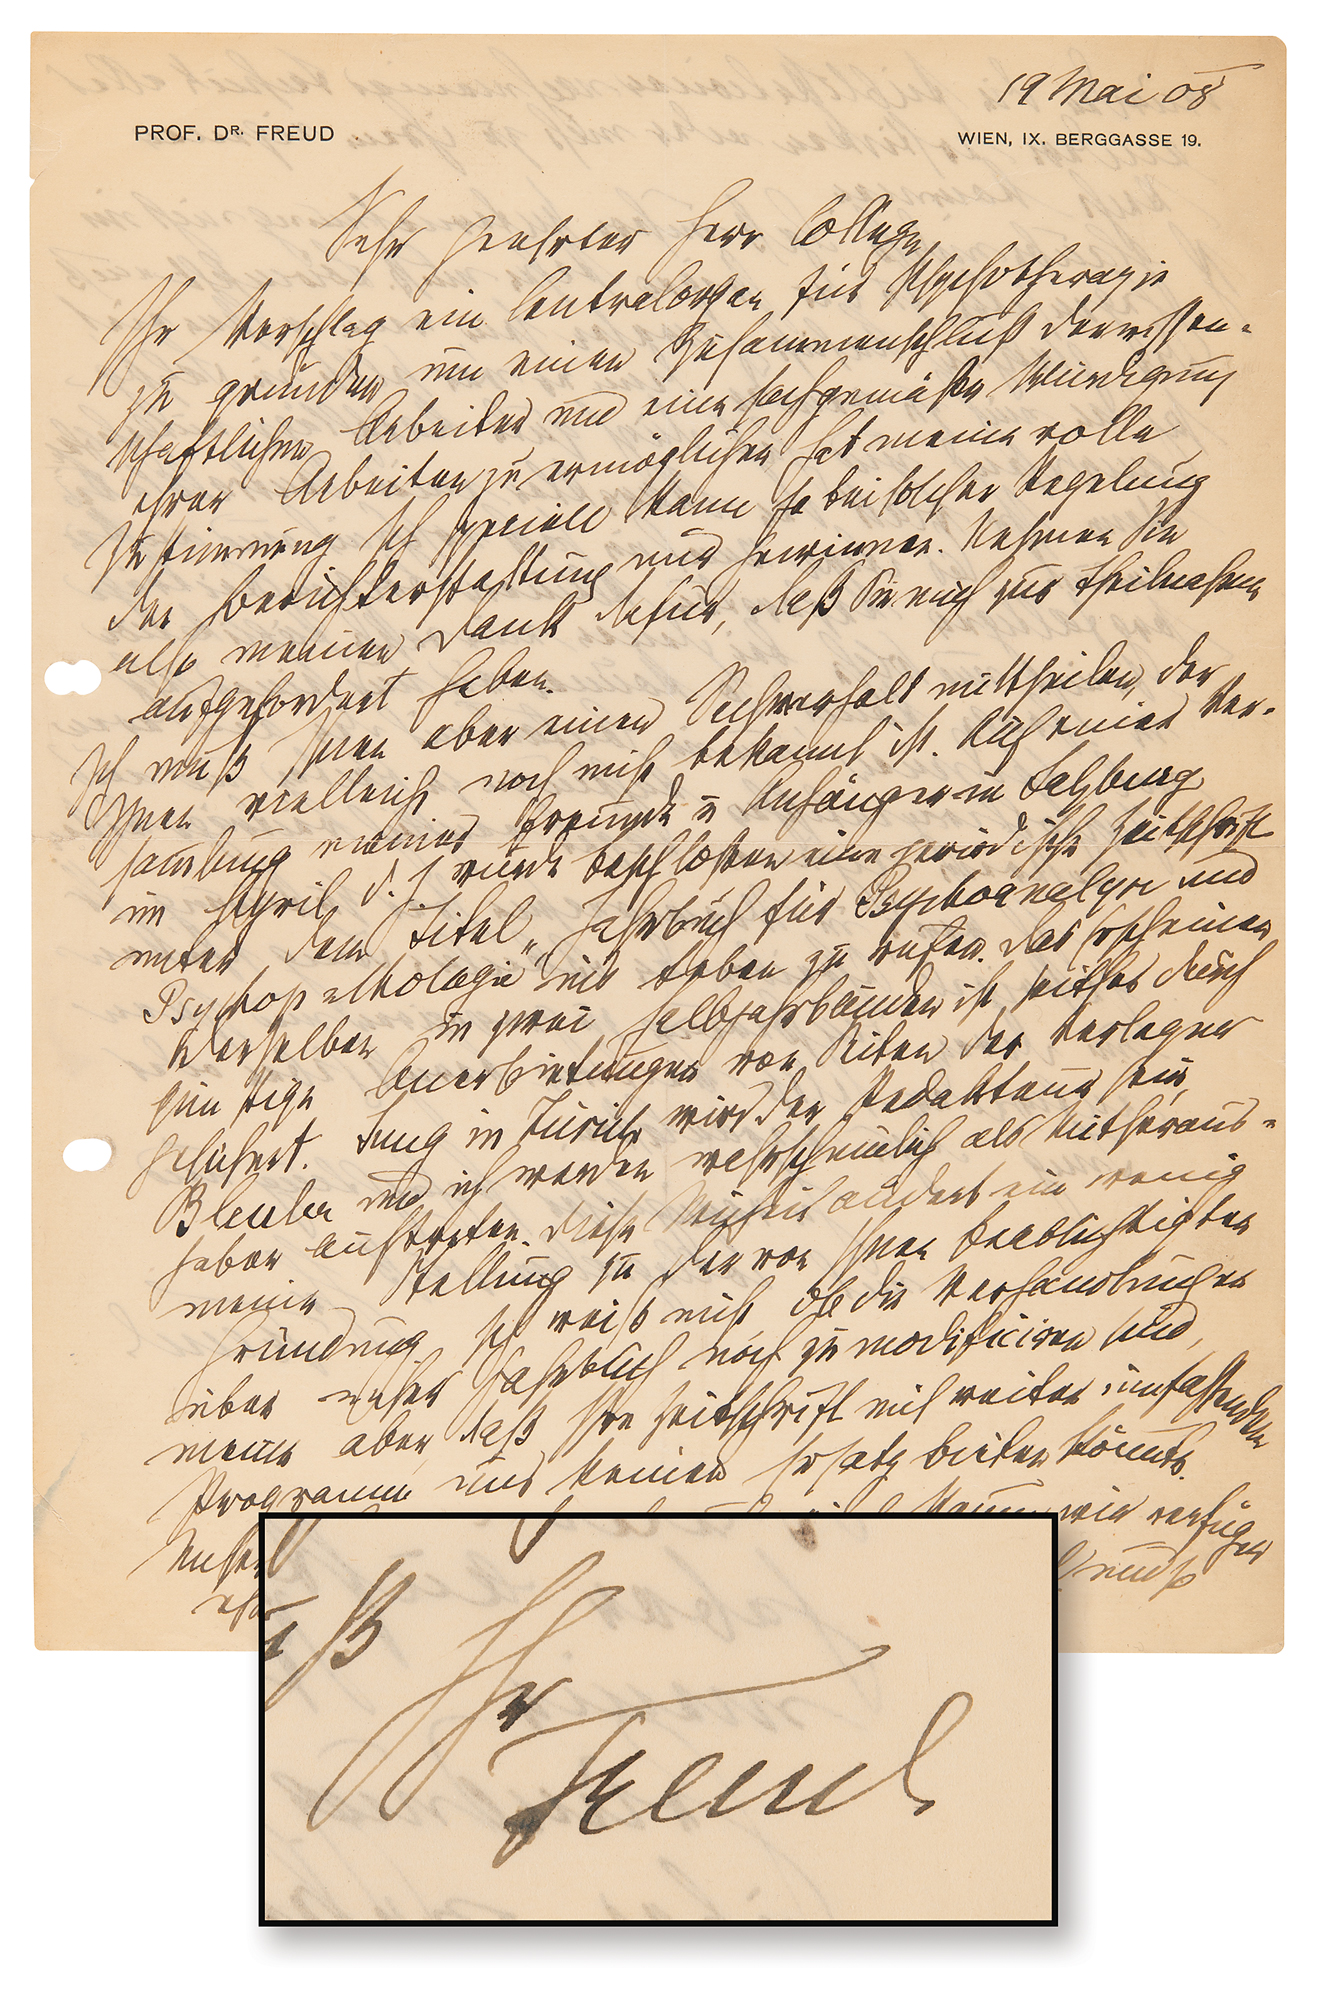 19 Mai 08
PROF. DR. FREUD
WIEN, IX. BERGGASSE 19.
Sehr geehrter Herr College
Ihr Vorschlag ein Centralorgan für Psychotherapie
zu gründen um einen Zusammenschluß der wissen-
schaftlichen Arbeiter und eine sachgemäße Würdigung
ihrer Arbeiten zu ermöglichen hat meine volle
Zustimmung Ich speciell kann ja bei solcher Regelung
der Berichterstattung nur gewinnen. Nehmen Sie
also meinen Dank dafür, daß Sie mich zur Theilnahme
aufgefordert haben.
Ich muß Ihnen aber einen Sachverhalt mittheilen, der
Ihnen vielleicht noch nicht bekannt ist. Auf einer Ver-
sammlung meiner Freunde u Anhänger in Salzburg
im April d. J. wurde beschlossen eine periodische Zeitschrift
unter dem Titel „Jahrbuch für Psychoanalyse und
Psychopathologie" ins Leben zu rufen. Das Erscheinen
derselben in zwei Halbjahrbänden ist seither durch
günstige Anerbietungen von Seiten der Verleger
gesichert. Jung in Zürich wird der Redakteur sein,
Bleuler und ich werden wahrscheinlich als Mitheraus-
geber auftreten. Diese ändert ein wenig
meine Stellung zu der von Ihnen beabsichtigten
Gründung Ich weiß nicht, ob die Verhandlungen
über unser Jahrbuch noch zu modificiren sind,
meine aber, daß Ihre Zeitschrift mit weiter umfassendem
Programm uns keinen Ersatz bieten könnte.
wir verfügen
muß
Ihr
Freud